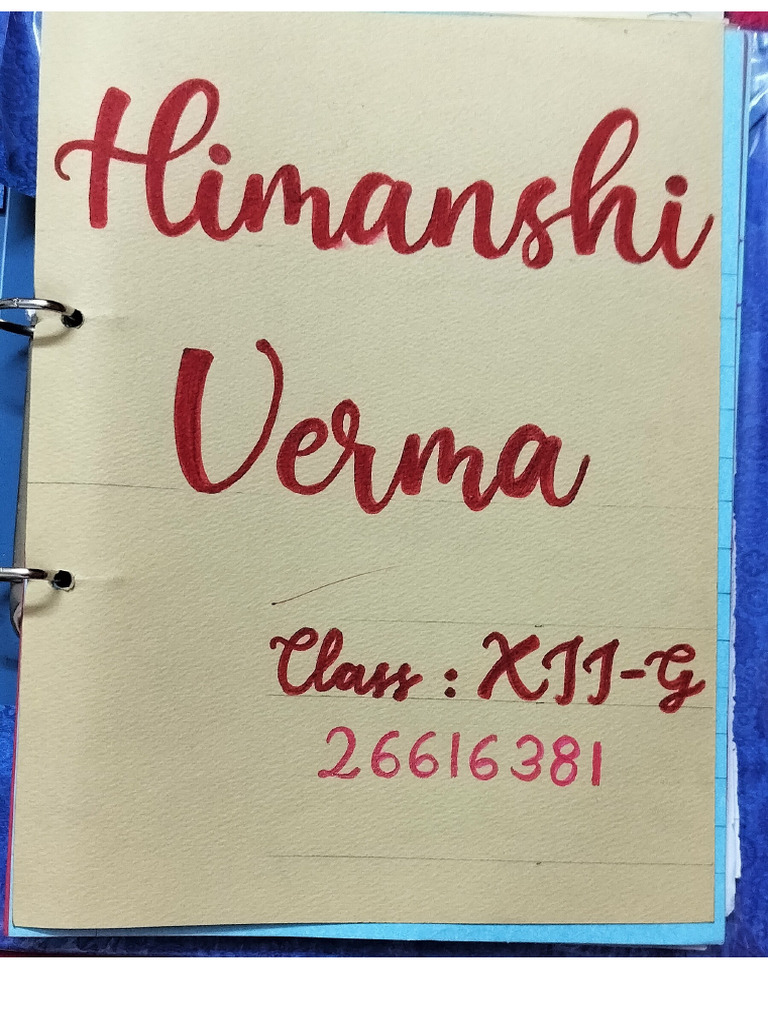 Himanshi
Verma
Class : XII-G
26616381